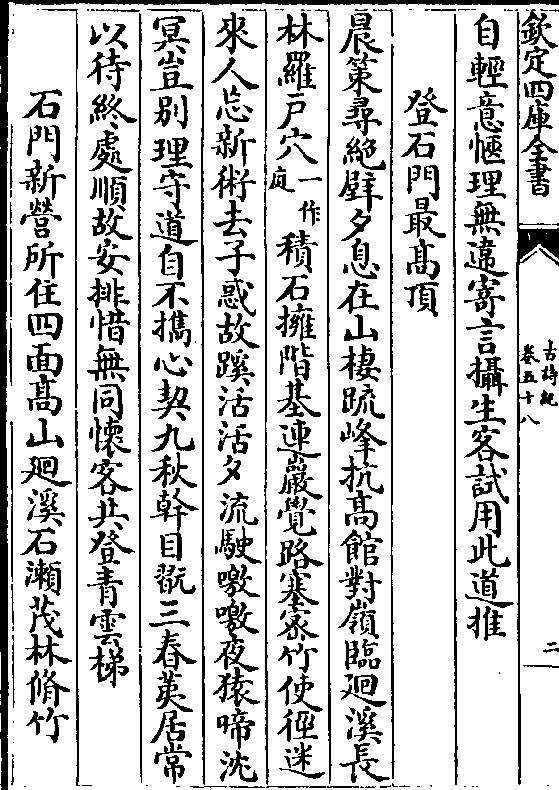 欽定四庫全書
古詩紀
卷五十八
二
自輕意愜理無違寄言攝生客試用此道推
登石門最高頂
晨策尋絕壁夕息在山棲疏峰抗高館對嶺臨廻溪長
林羅戶穴一作庭積石擁階基連巖覺路塞密竹使徑迷
來人忘新術去子惑故蹊活活夕流駛噭噭夜猿啼沈
冥豈别理守道自不擕心契九秋幹目翫三春荑居常
以待終處順故安排惜無同懷客共登青雲梯
石門新營所住四面高山廻溪石瀨茂林脩竹